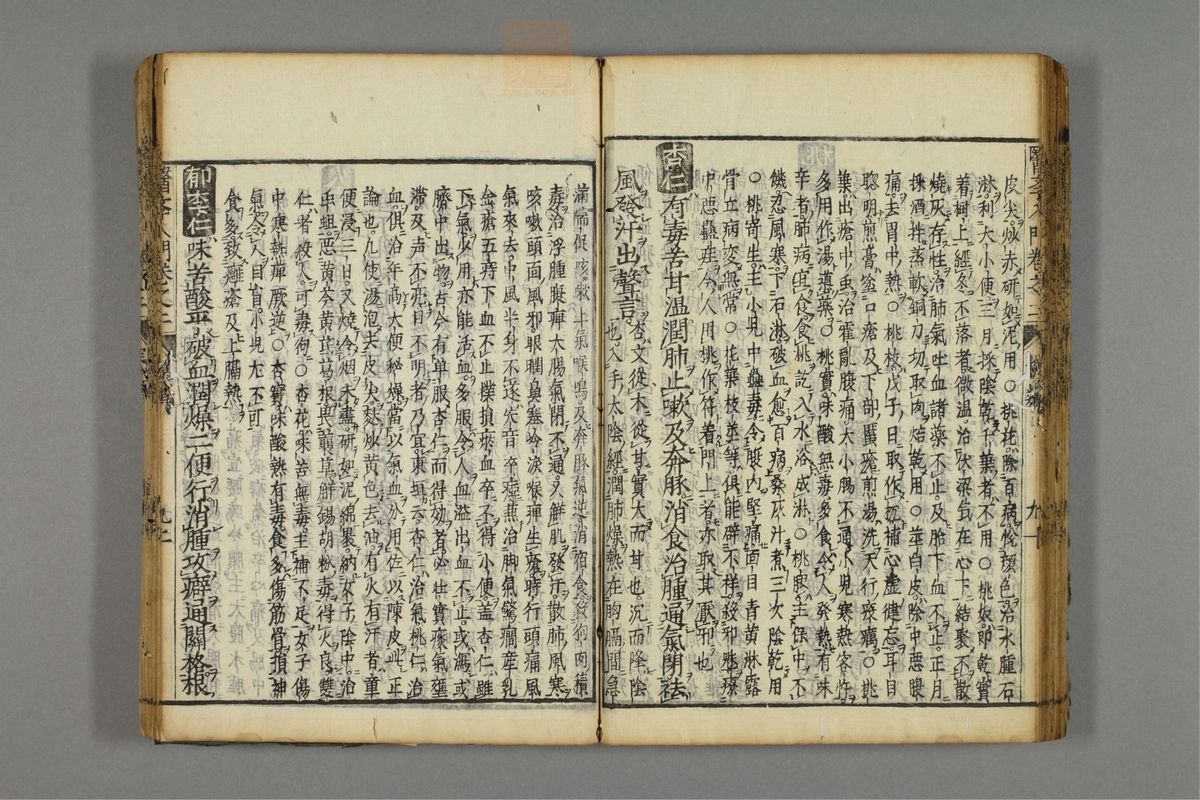 皮尖炒赤研如泥用○桃花除百病悅顏色治水腫石
淋利大小便三月採陰乾千葉者不用○桃奴即乾實
着樹上經冬不落者微溫治伏梁氣在心下結聚不散
燒灰存性治肺氣吐血諸藥不止及胎下血不止正月
採酒拌蒸軟銅刀切取肉焙乾用○莖白皮除中惡腹
痛去胃中熱○桃枝戊子日取作補心虛健忘耳目
聰明煎膏塗口瘡及下部瘡煎湯洗天行疫癘○桃
葉出瘡中虫治霍亂腹痛大小腸不通小兒寒熱客忤
多用作湯導藥○桃實味酸無毒多食令人發熱有味
辛者肺病宜食食桃訖入水浴成淋○桃膠主保中不
饑忍風寒下石淋破血愈百病桑灰汁煮三次陰乾用
○桃寄生主小兒中蠱毒令腹內堅痛面目青黃淋露
骨立病變無常○花葉枝莖等俱能辟不祥殺邪魅療
中惡蠱疰今人用桃作符着門上者亦取其厭邪也
杏仁有毒苦甘溫潤肺止嗽及奔豚消食治腫通氣閉祛
風發汗出聲言杏文從木從甘實大而甘也沉而降陰
也入手太陰經潤肺燥熱在胸膈間急
滿喘促咳嗽上氣喉鳴及奔豚氣逆消宿食殺狗肉積
毒治浮腫腹痺大腸氣閉不通又解肌發汗散肺風寒
咳嗽頭面風邪眼瞤鼻塞冷淚喉痺生瘡時行頭痛風
氣來去中風半身不遂失音卒癋蕉治脚氣驚癇產乳
金瘡五痔下血不止撲損瘀血卒不得小便蓋杏仁雖
下氣少用亦能活血多服令人血溢出血不止或瀉或
臍中出物古今有單服杏仁而得効者必壯實痰氣壅
滯及声不亮目不明者乃宜東垣云杏仁治氣桃仁治
血俱治年高大便秘燥當以氣血分用佐以陳皮此正
論也凡使湯泡去皮尖麩炒黃色去油有火有汗者童
便浸三日又燒令烟未盡研如泥綿裹納女子陰中治
虫疽惡黃芩黃茋葛根畏蘘草解錫胡粉毒得火良雙
仁者殺人可毒狗○杏花味苦無毒主補不足女子傷
中寒熱痺厥逆○杏實味酸熱有毒食多傷筋骨損神
氣令人目盲小兒尤不可
食多致瘡癰及上膈熱
郁李仁味苦酸平破血潤燥二便行消腫攻癖通關格根